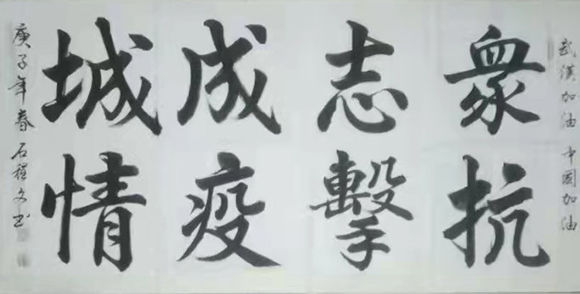 武漢加油 中國加油
衆志成城
抗擊疫情
庚子年春 石程文书